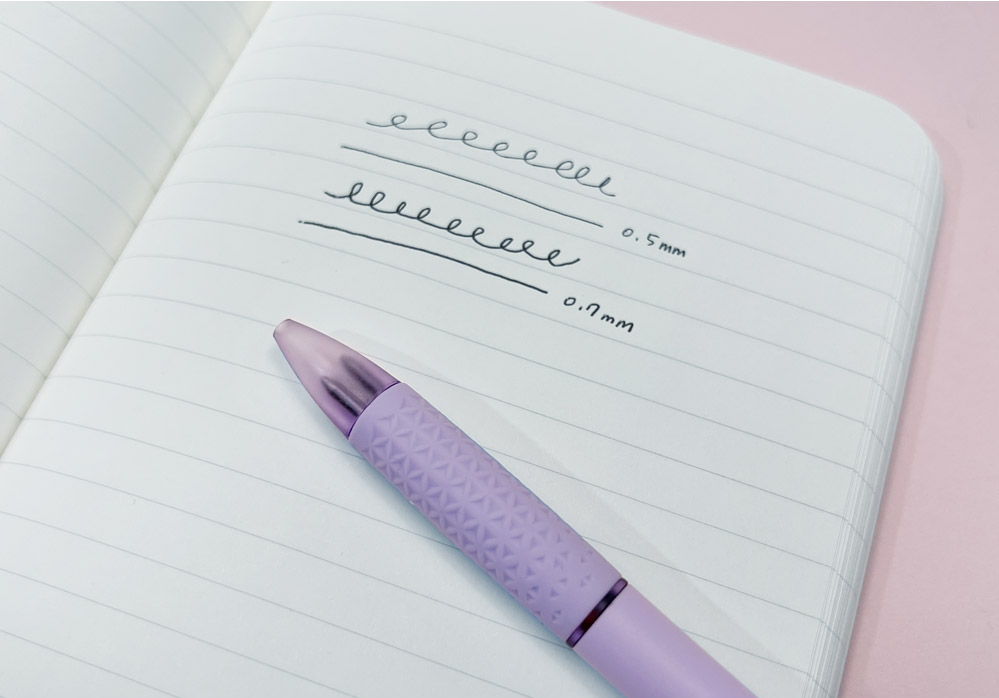 0.5mm
0.7mm